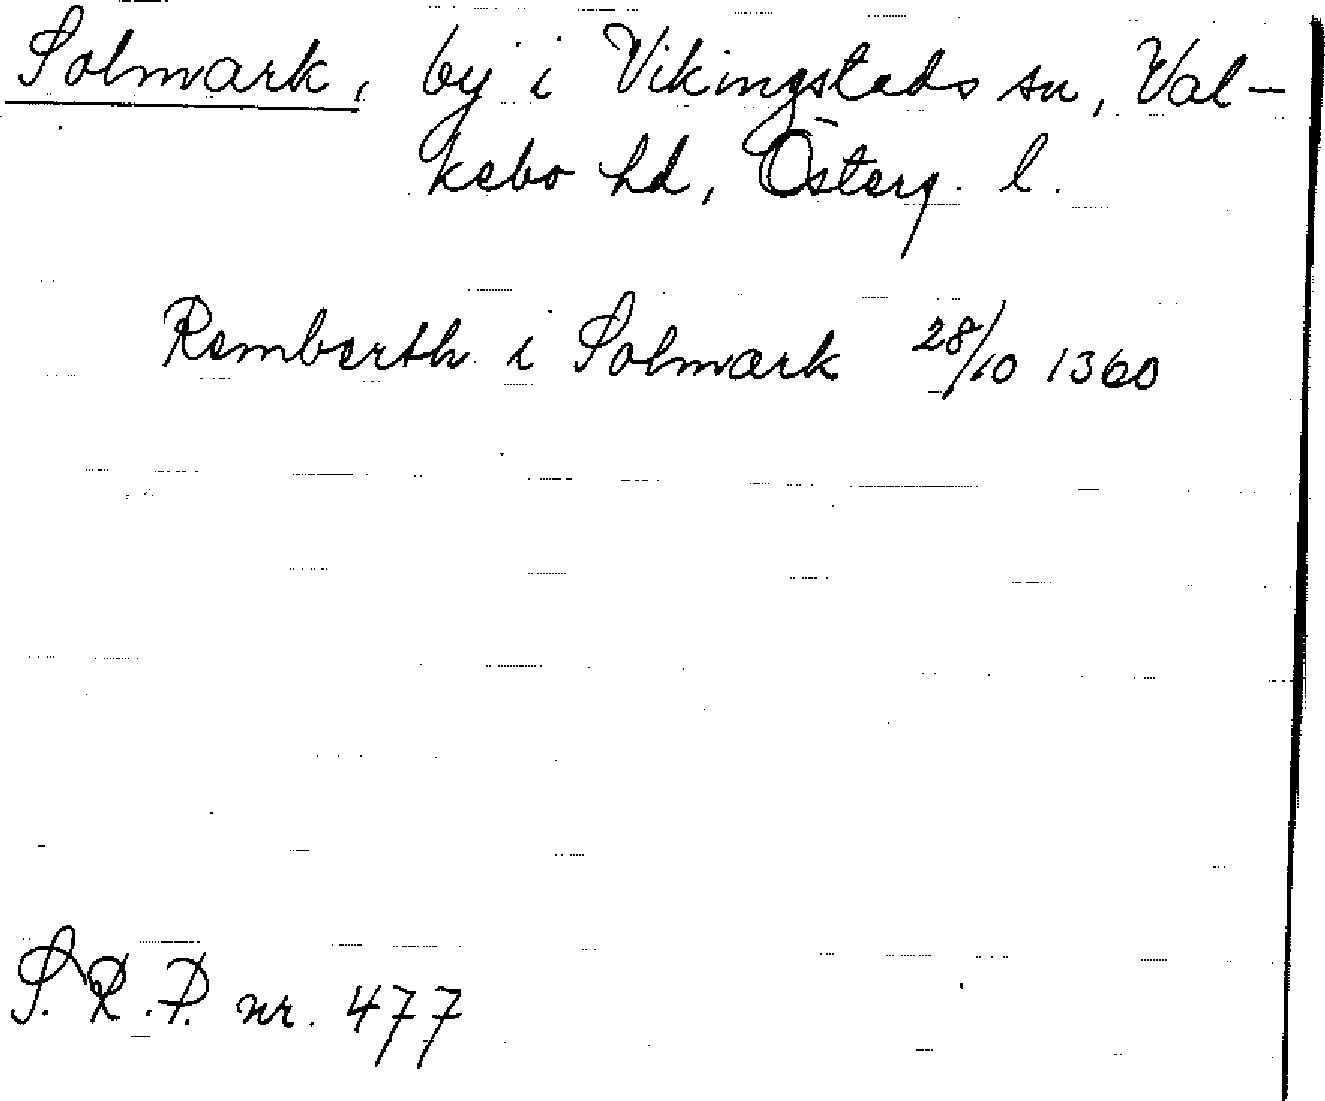 Solmark, by i Vikingstads sn, Val-
kebo hd, Österg. l.
Remberth i Solmark 28/10 1360
S.R.P. nr. 477